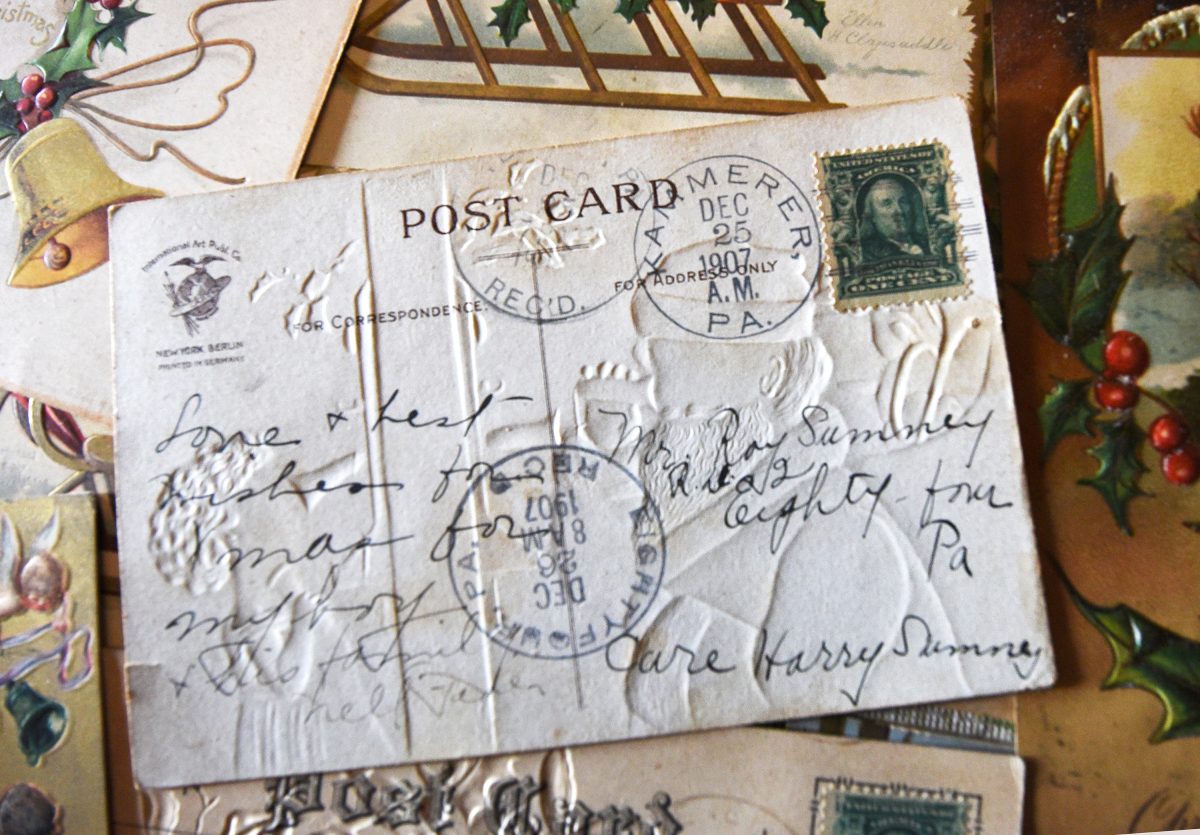 Ellen
H Clapsaddle
POST CARD
International Art Publ. Co.
NEW YORK BERLIN
PRINTED IN GERMANY
FOR CORRESPONDENCE.
FOR ADDRESS ONLY
DEC
REC'D.
KAMMERER,
DEC
25
1907
A.M.
PA.
UNITED STATES OF
AMERICA
POSTAGE
ONE CENT
Love & best
wishes for
Xmas for
my boy
& His family
Mr. Roy Summey
Eighty-four
Pa
Care Harry Summey
EIGHTYFOUR, PA.
DEC
26
8 AM
1907
REC'D
Post Card